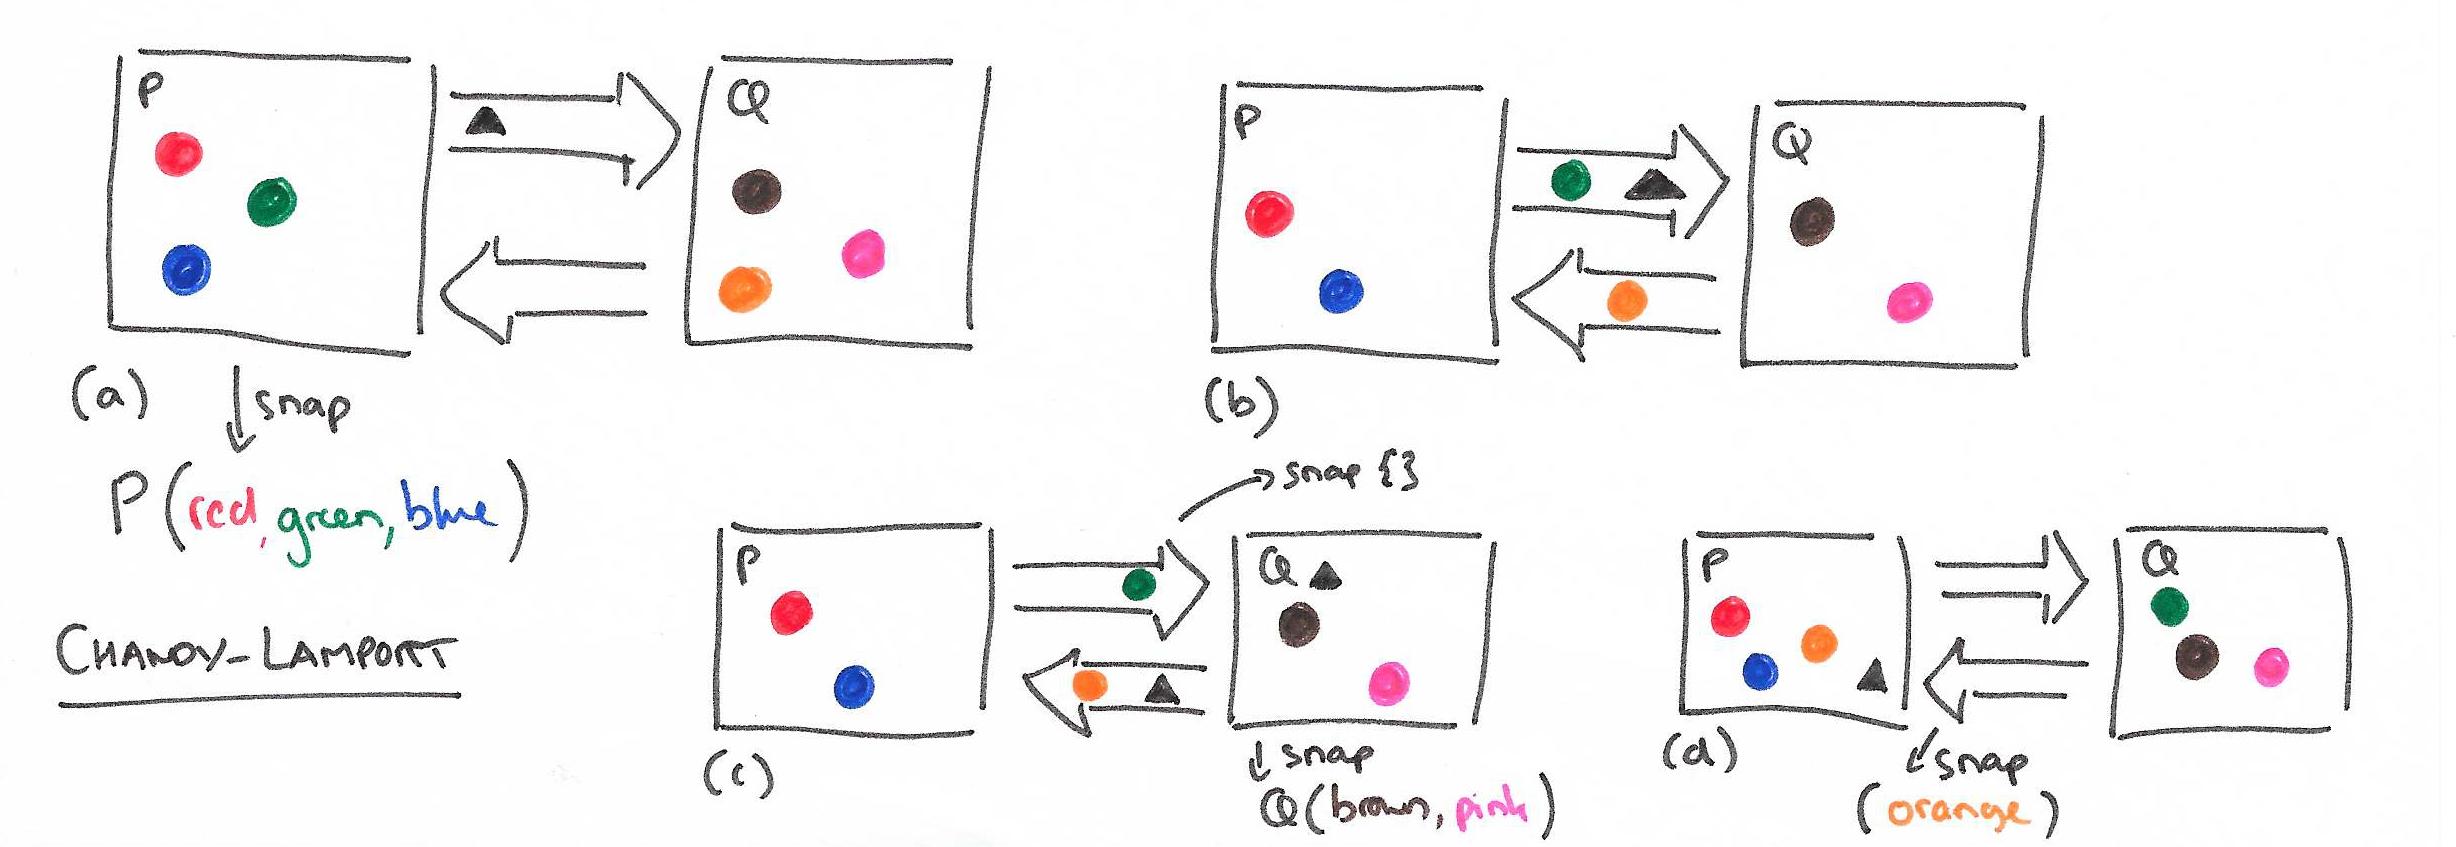 P
Q
(a)
snap
P(red, green, blue)
CHANDY-LAMPORT
P
Q
(b)
snap {}
P
Q
(c)
snap
Q(brown, pink)
P
Q
(d)
snap
(orange)